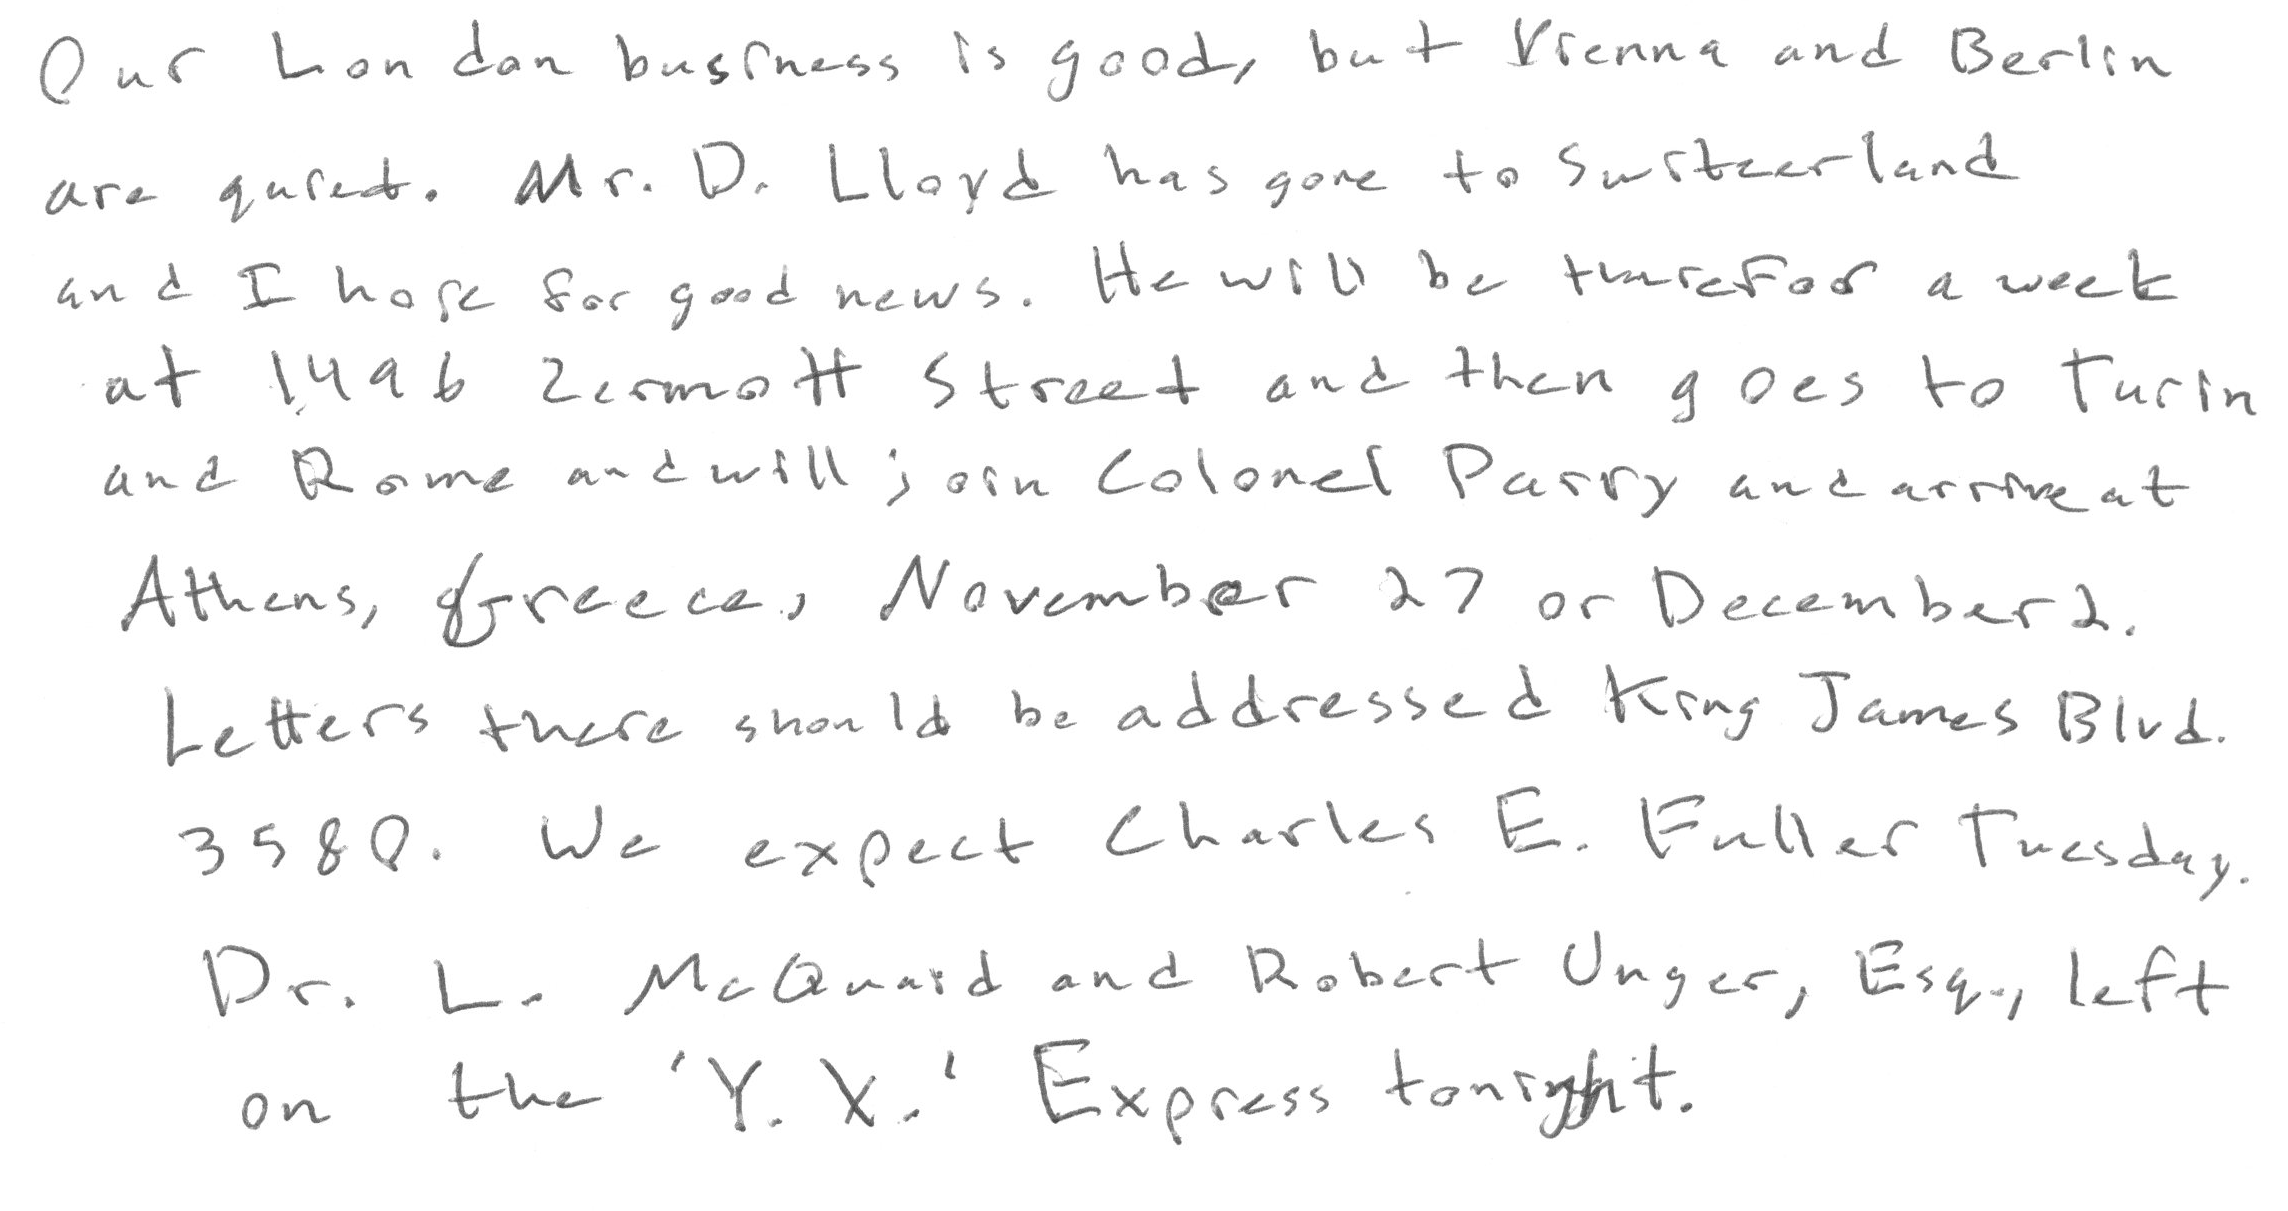 Our London business is good, but Vienna and Berlin
are quiet. Mr. D. Lloyd has gone to Switzerland
and I hope for good news. He will be there for a week
at 1496 Zermott Street and then goes to Turin
and Rome and will join Colonel Parry and arrive at
Athens, Greece, November 27 or December 2.
Letters there should be addressed King James Blvd.
3580. We expect Charles E. Fuller Tuesday.
Dr. L. McQuaid and Robert Unger, Esq., left
on the 'Y. X.' Express tonight.